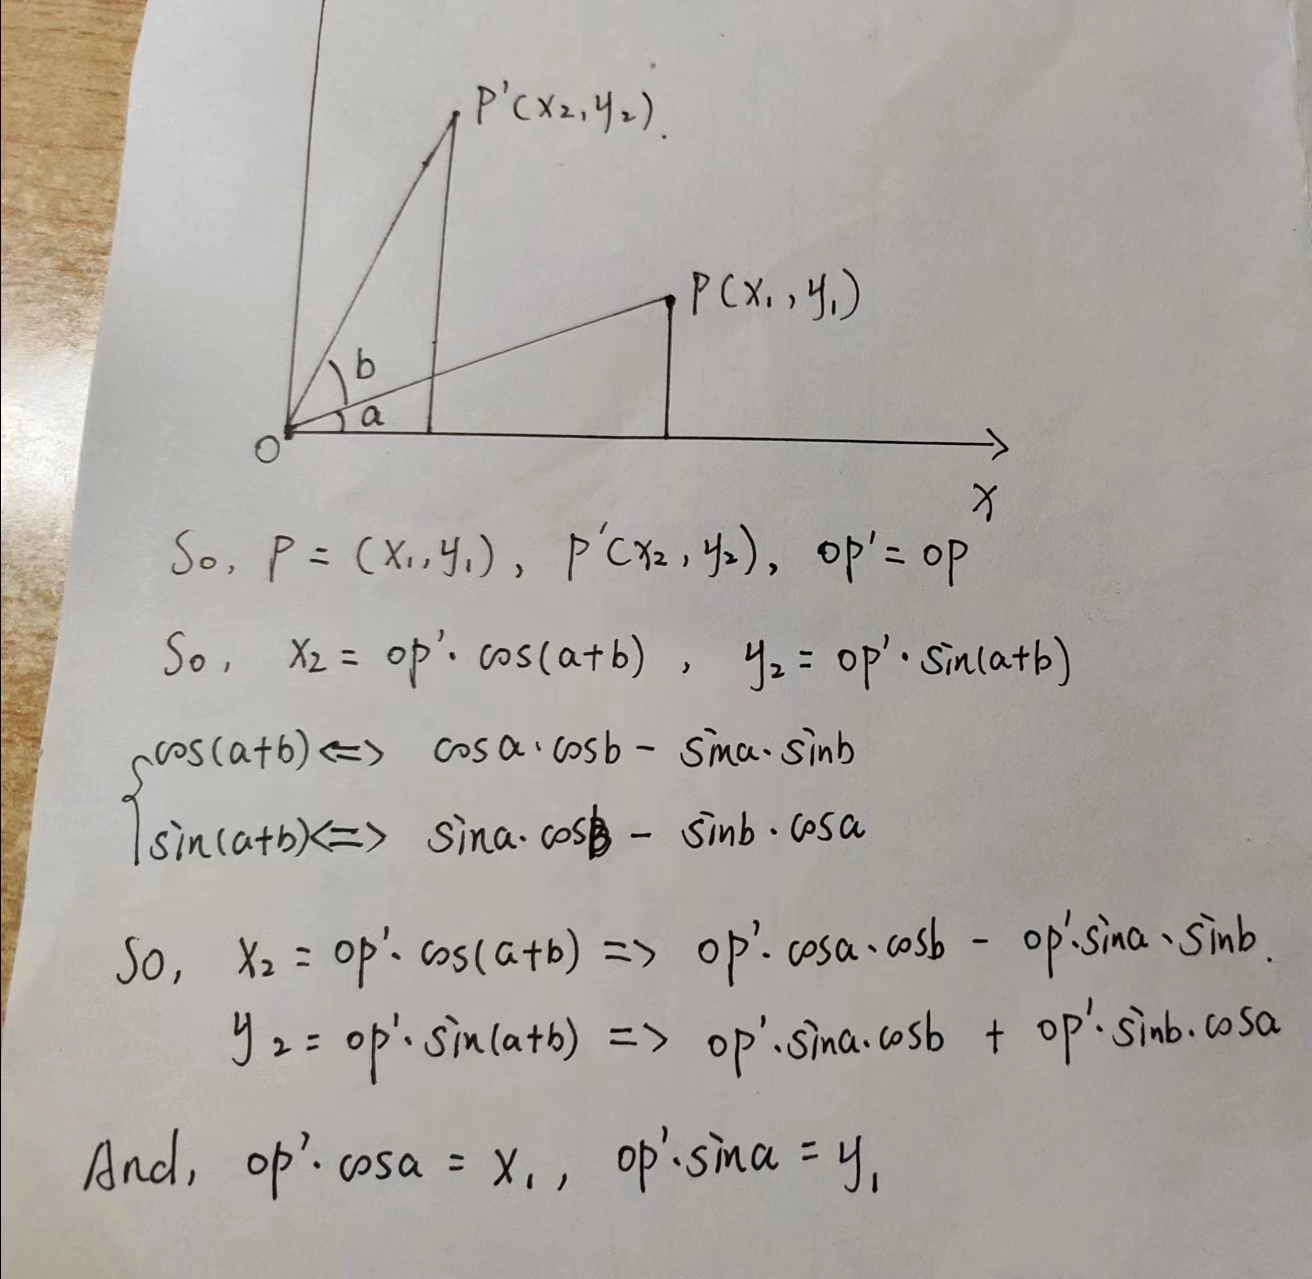 P'(x₂,y₂).
P(x₁,y₁)
b
a
O
x
So, P = (x₁,y₁), p'(x₂,y₂), op' = op
So, x₂ = op'·cos(a+b), y₂ = op'·sin(a+b)
{cos(a+b) <=> cosa·cosb - sina·sinb
sin(a+b) <=> sina·cosb - sinb·cosa
So, x₂ = op'·cos(a+b) => op'·cosa·cosb - op'·sina·sinb.
y₂ = op'·sin(a+b) => op'·sina·cosb + op'·sinb·cosa
And, op'·cosa = x₁, op'·sina = y₁